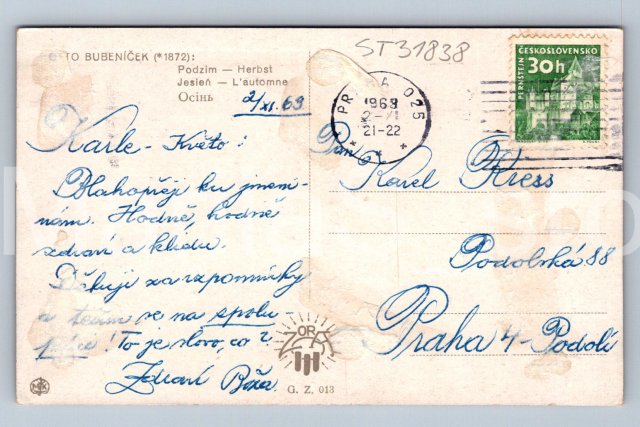 ST31838
OTTO BUBENÍČEK (*1872):
Podzim — Herbst
Jesień — L'automne
Осінь
2/XI. 63
PRAHA 025
1963
2.-XI
21-22
ČESKOSLOVENSKO
30h
PERNŠTEJN
Karle - Květo!
Blahopřeji ku jmen-
nám. Hodně, hodně
zdraví a klidu.
Děkuji za vzpomínky
a těším se na spolu
! To je slovo, co?
Zdraví
Pan
Karel Kress
Podolská 88
Praha 4 - Podolí
ORBIS
G. Z. 013